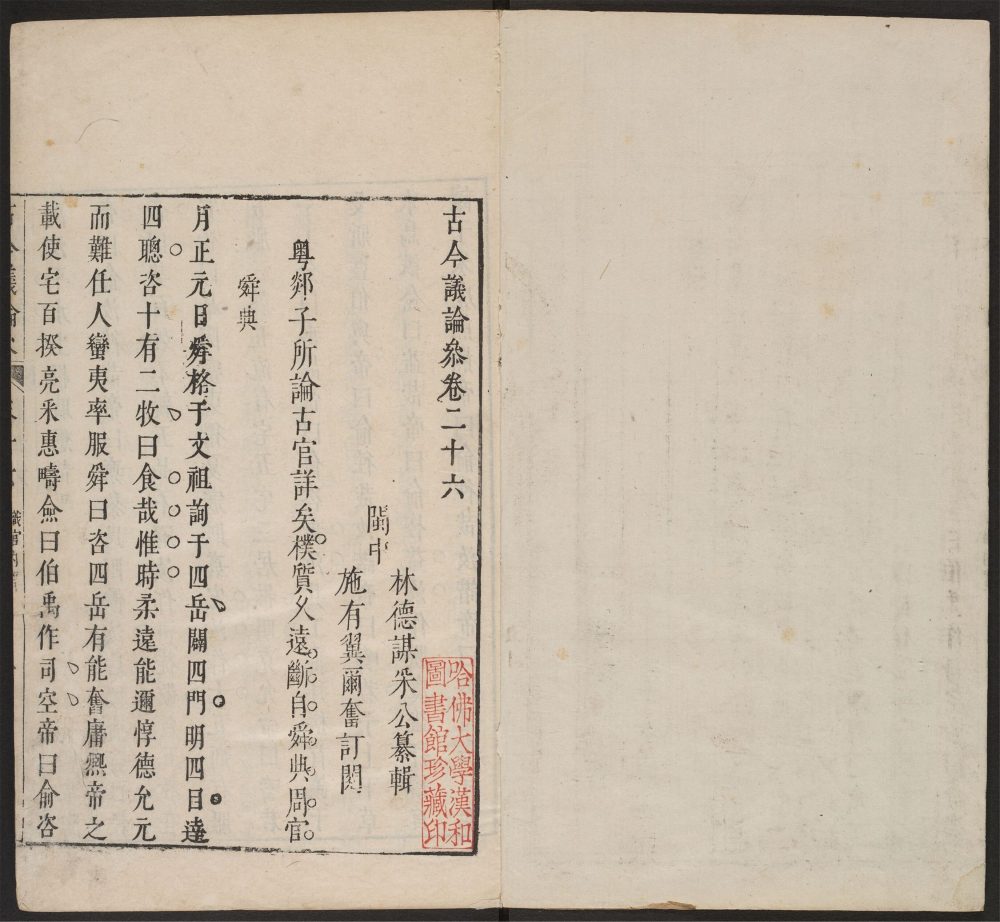 古今議論叅卷二十六
閩中
林德謀采公纂輯
施有翼爾奮訂閱
粤郯子所論古官詳矣樸質乆遠斷自舜典周官
舜典
月正元日舜格于文祖詢于四岳闢四門明四目達
四聰咨十有二牧曰食哉惟時柔遠能邇惇德允元
而難任人蠻夷率服舜曰咨四岳有能奮庸熈帝之
載使宅百揆亮采惠疇僉曰伯禹作司空帝曰俞咨
哈佛大學漢和
圖書館珍藏印